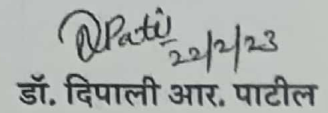 DRPatil
22/2/23
डॉ. दिपाली आर. पाटील